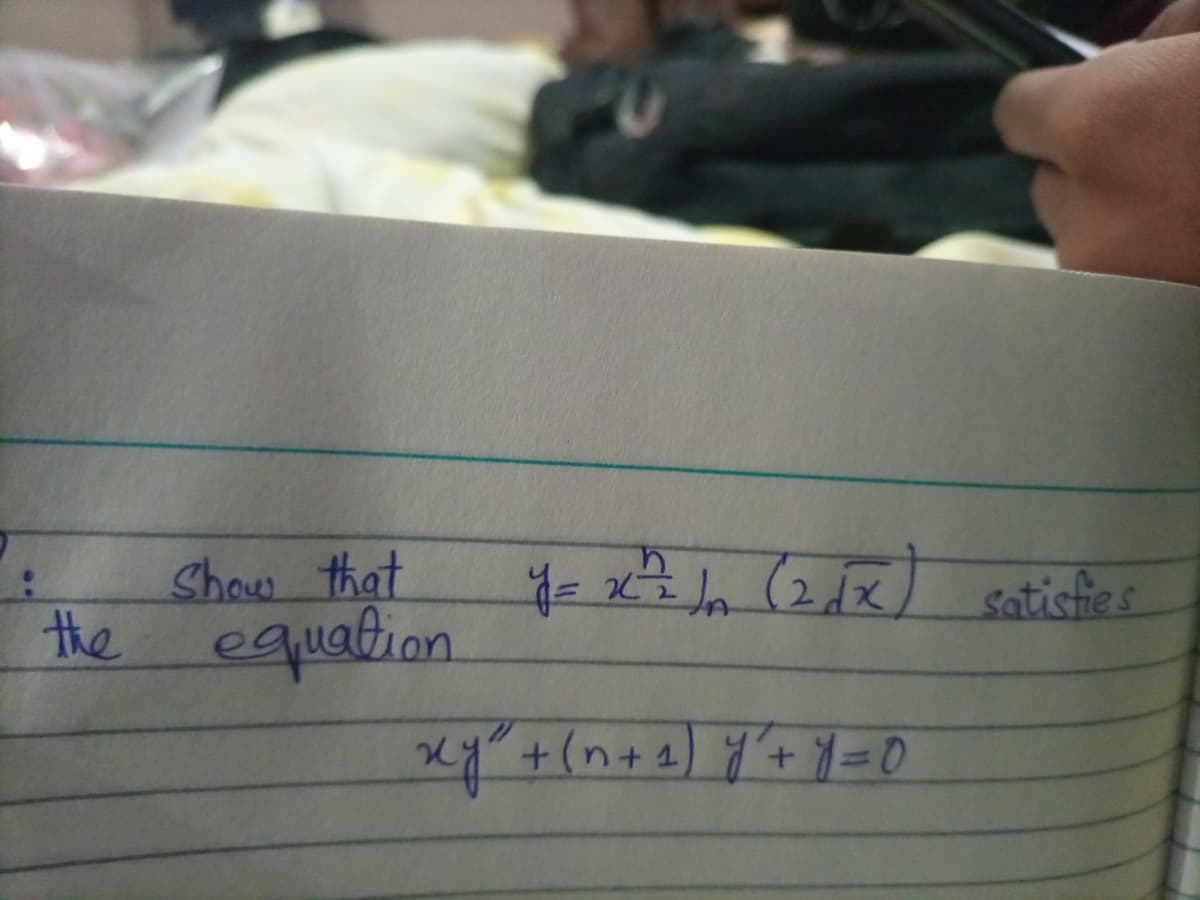 : Show that y = x^{n/2} J_n (2√x) satisfies
the equation
xy″ + (n+1) y′ + y = 0